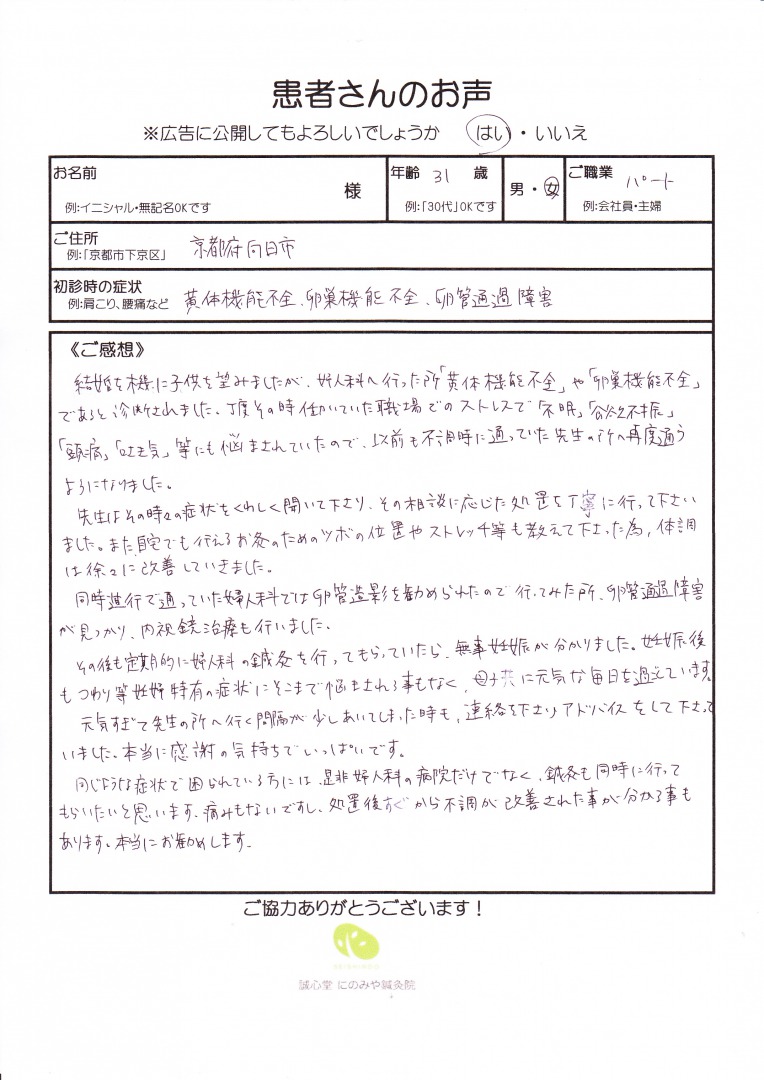 患者さんのお声
※広告に公開してもよろしいでしょうか　はい・いいえ
お名前
様
例:イニシャル・無記名OKです
年齢 31 歳
例:「30代」OKです
男・女
ご職業 パート
例:会社員・主婦
ご住所
例:「京都市下京区」 京都府向日市
初診時の症状
例:肩こり、腰痛など 黄体機能不全、卵巣機能不全、卵管通過障害
《ご感想》
結婚を機に子供を望みましたが、婦人科へ行った所「黄体機能不全」や「卵巣機能不全」
であると診断されました。丁度その時働いていた職場でのストレスで「不眠」「食欲不振」
「頭痛」「吐き気」等にも悩まされていたので、以前も不調時に通っていた先生の所へ再度通う
ようになりました。
先生はその時々の症状をくわしく聞いて下さり、その相談に応じた処置を丁寧に行って下さい
ました。また自宅でも行えるお灸のためのツボの位置やストレッチ等も教えて下さった為、体調
は徐々に改善していきました。
同時進行で通っていた婦人科では卵管造影を勧められたので行ってみた所、卵管通過障害
が見つかり、内視鏡治療も行いました。
その後も定期的に婦人科の鍼灸を行ってもらっていたら、無事妊娠が分かりました。妊娠後
もつわり等妊婦特有の症状にそこまで悩まされる事もなく、母子共に元気な毎日を過えています。
元気すぎて先生の所へ行く間隔が少しあいてしまった時も、連絡を下さりアドバイスをして下さって
いました。本当に感謝の気持ちでいっぱいです。
同じような症状で困られている方には、是非婦人科の病院だけでなく、鍼灸も同時に行って
もらいたいと思います。痛みもないですし、処置後すぐから不調が改善された事が分かる事も
あります。本当にお勧めします。
ご協力ありがとうございます！
誠心堂 にのみや鍼灸院